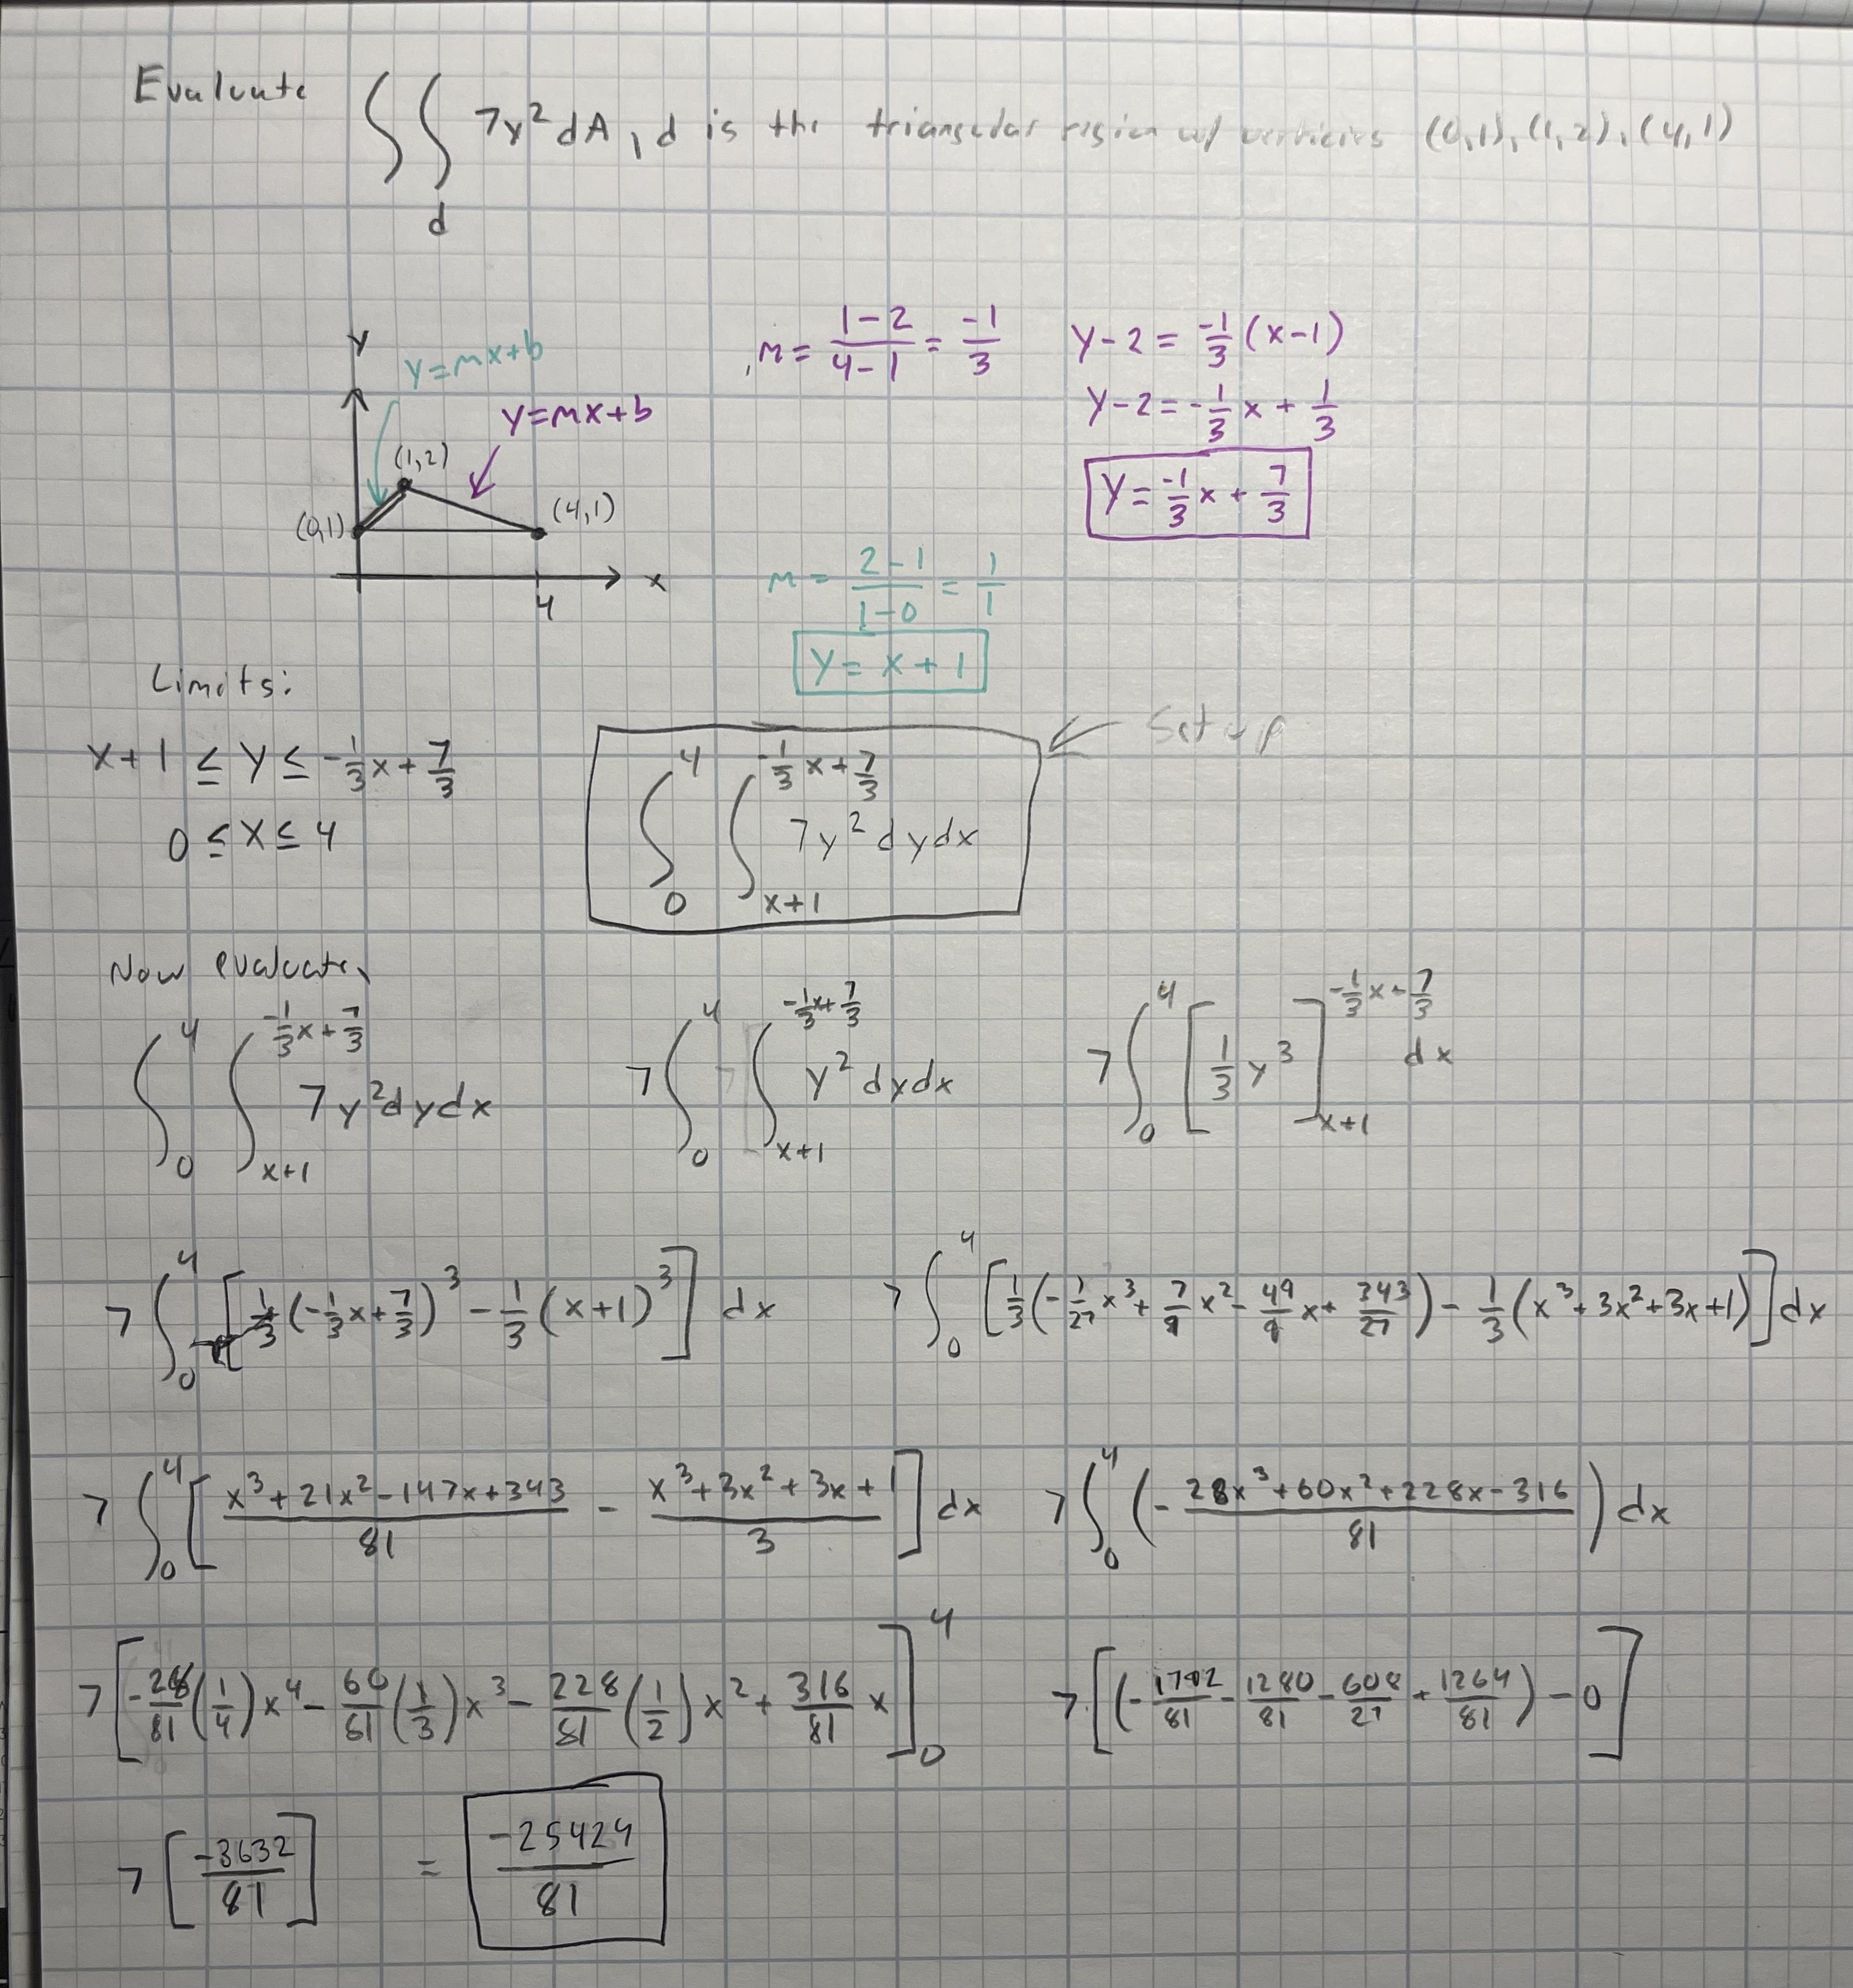 Evaluate ∫∫_d 7y² dA, d is the triangular region w/ verticies (0,1), (1,2), (4,1)
y
y=mx+b
y=mx+b
(1,2)
(0,1)
(4,1)
x
4
m = (1-2)/(4-1) = -1/3
y-2 = -1/3 (x-1)
y-2 = -1/3 x + 1/3
y = -1/3 x + 7/3
m = (2-1)/(1-0) = 1/1
y = x + 1
Limits:
x+1 ≤ y ≤ -1/3 x + 7/3
0 ≤ x ≤ 4
∫_0^4 ∫_{x+1}^{-1/3 x + 7/3} 7y² dy dx
Set up
Now evaluate,
∫_0^4 ∫_{x+1}^{-1/3 x + 7/3} 7y² dy dx
7 ∫_0^4 ∫_{x+1}^{-1/3 x + 7/3} y² dy dx
7 ∫_0^4 [1/3 y³]_{x+1}^{-1/3 x + 7/3} dx
7 ∫_0^4 [1/3 (-1/3 x + 7/3)³ - 1/3 (x+1)³] dx
7 ∫_0^4 [1/3 (-1/27 x³ + 7/9 x² - 49/9 x + 343/27) - 1/3 (x³ + 3x² + 3x + 1)] dx
7 ∫_0^4 [(x³ + 21x² - 147x + 343)/81 - (x³ + 3x² + 3x + 1)/3] dx
7 ∫_0^4 (- (28x³ + 60x² + 228x - 316)/81) dx
7 [-28/81 (1/4) x⁴ - 60/81 (1/3) x³ - 228/81 (1/2) x² + 316/81 x]_0^4
7 [(-1792/81 - 1280/81 - 608/27 + 1264/81) - 0]
7 [-3632/81] = -25424/81